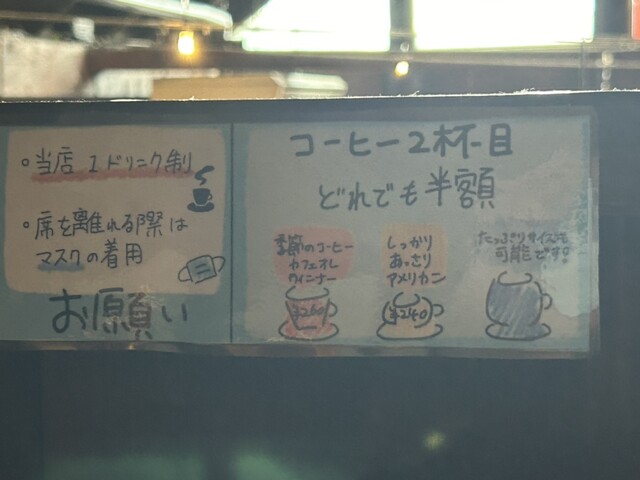 。当店 1ドリンク制
。席を離れる際は
マスクの着用
お願い
コーヒー2杯目
どれでも半額
季節のコーヒー
カフェオレ
ウィンナー
¥260
しっかり
あっさり
アメリカン
¥240
たっぷりサイズも
可能です。